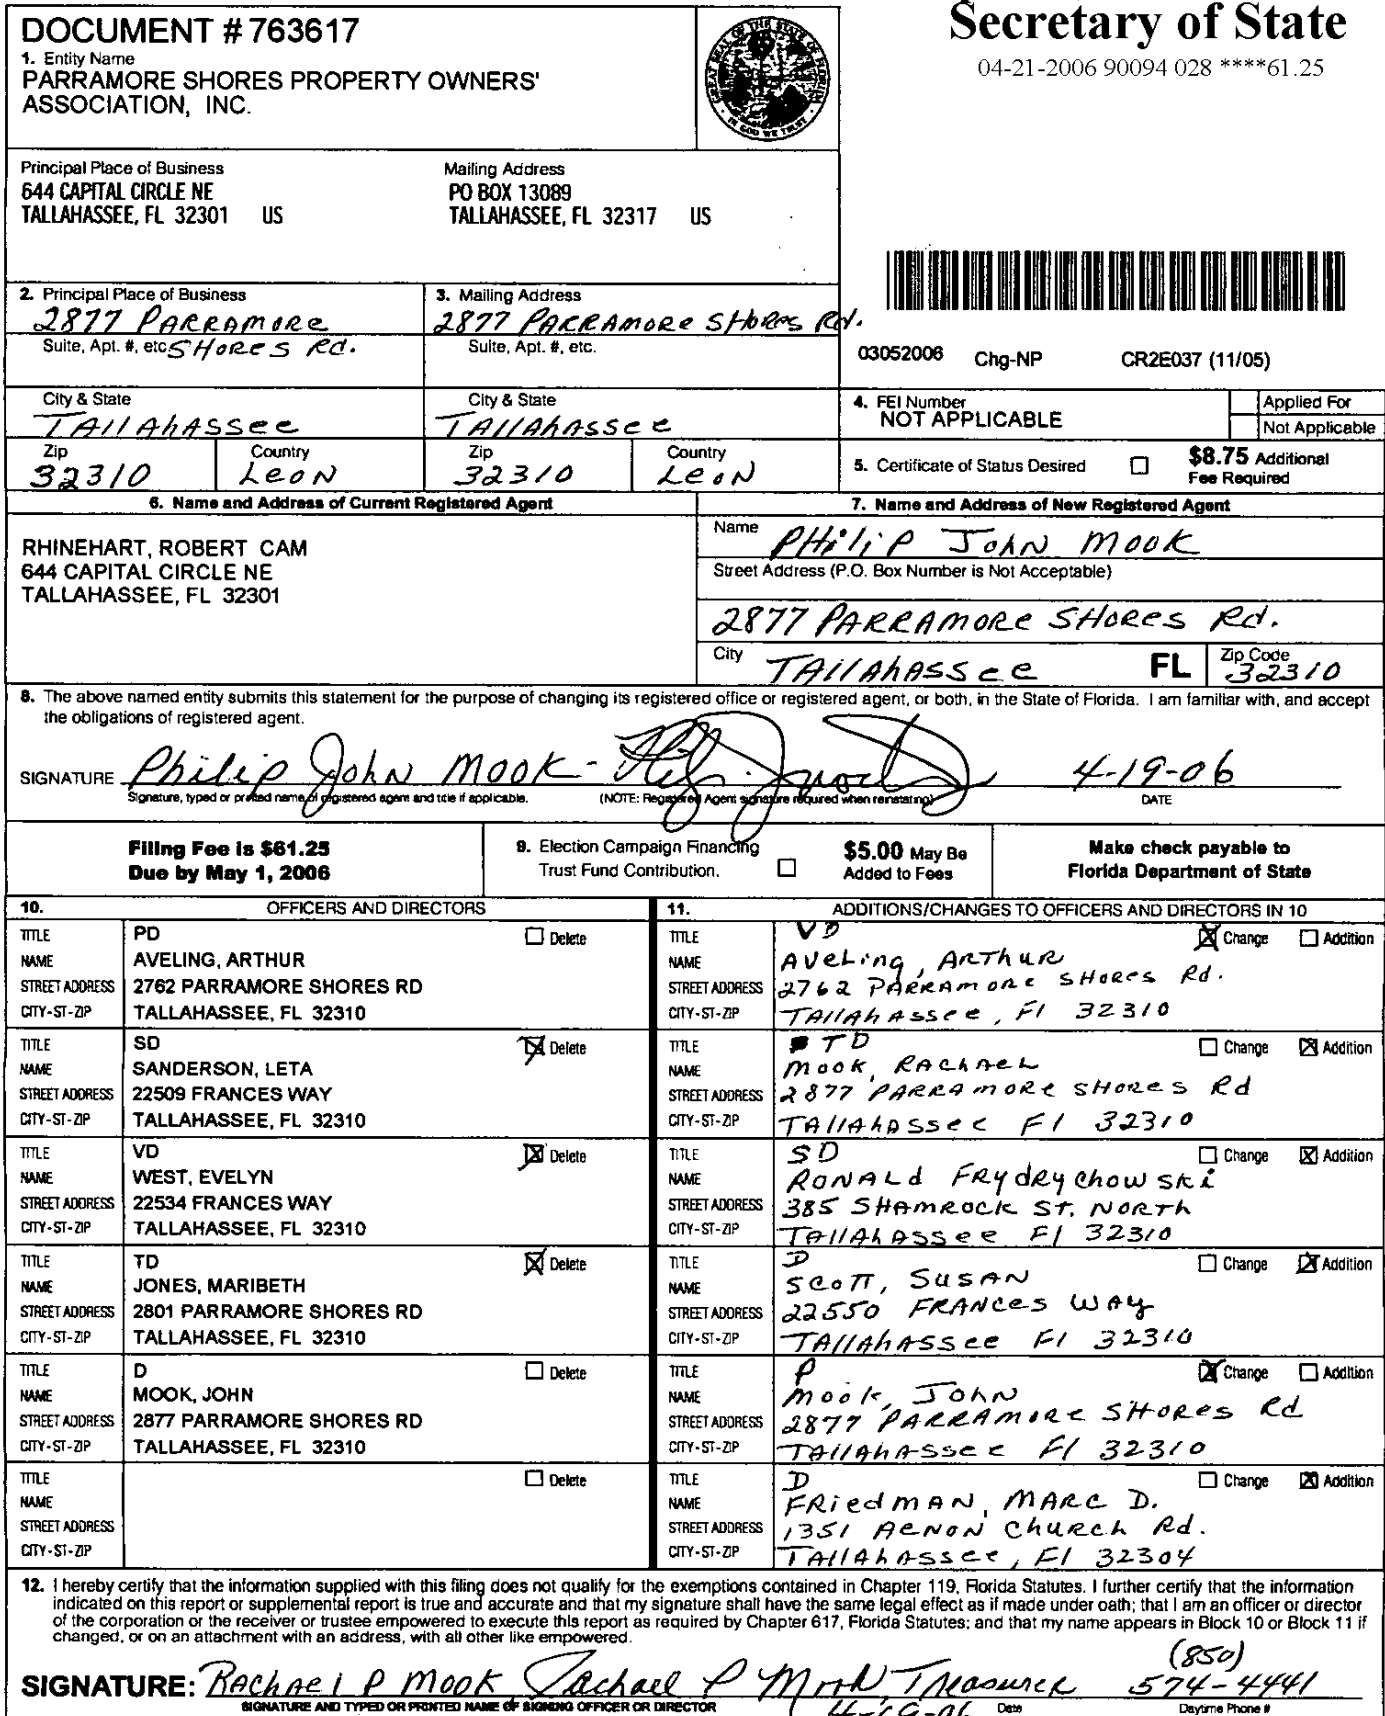 DOCUMENT # 763617
1. Entity Name
PARRAMORE SHORES PROPERTY OWNERS'
ASSOCIATION, INC.
Secretary of State
04-21-2006 90094 028 ****61.25
Principal Place of Business
644 CAPITAL CIRCLE NE
TALLAHASSEE, FL 32301 US
Mailing Address
PO BOX 13089
TALLAHASSEE, FL 32317 US
2. Principal Place of Business
2877 PARRAMORE
Suite, Apt. #, etc. SHORES Rd.
3. Mailing Address
2877 PARRAMORE SHORES Rd.
Suite, Apt. #, etc.
03052006 Chg-NP CR2E037 (11/05)
City & State
TAllAhASSee
City & State
TAllAhASSee
4. FEI Number
NOT APPLICABLE
Applied For
Not Applicable
Zip
32310
Country
LeoN
Zip
32310
Country
LeoN
5. Certificate of Status Desired
$8.75 Additional
Fee Required
6. Name and Address of Current Registered Agent
RHINEHART, ROBERT CAM
644 CAPITAL CIRCLE NE
TALLAHASSEE, FL 32301
7. Name and Address of New Registered Agent
Name PHiliP JohN MOOK
Street Address (P.O. Box Number is Not Acceptable)
2877 PARRAMORE SHORES Rd.
City TAllAhASSee FL Zip Code 32310
8. The above named entity submits this statement for the purpose of changing its registered office or registered agent, or both, in the State of Florida. I am familiar with, and accept
the obligations of registered agent.
SIGNATURE Philip John MOOK- 4-19-06
Signature, typed or printed name of registered agent and title if applicable. (NOTE: Registered Agent signature required when reinstating) DATE
Filing Fee is $61.25
Due by May 1, 2006
9. Election Campaign Financing
Trust Fund Contribution.
$5.00 May Be
Added to Fees
Make check payable to
Florida Department of State
10. OFFICERS AND DIRECTORS
11. ADDITIONS/CHANGES TO OFFICERS AND DIRECTORS IN 10
TITLE PD Delete
NAME AVELING, ARTHUR
STREET ADDRESS 2762 PARRAMORE SHORES RD
CITY-ST-ZIP TALLAHASSEE, FL 32310
TITLE VD Change Addition
NAME AVeLing, ARThUR
STREET ADDRESS 2762 PARRAMORE SHORES Rd.
CITY-ST-ZIP TAllAhASSee, Fl 32310
TITLE SD Delete
NAME SANDERSON, LETA
STREET ADDRESS 22509 FRANCES WAY
CITY-ST-ZIP TALLAHASSEE, FL 32310
TITLE TD Change Addition
NAME MOOK, RAChAeL
STREET ADDRESS 2877 PARRAMORE SHORES Rd
CITY-ST-ZIP TAllAhASSee Fl 32310
TITLE VD Delete
NAME WEST, EVELYN
STREET ADDRESS 22534 FRANCES WAY
CITY-ST-ZIP TALLAHASSEE, FL 32310
TITLE SD Change Addition
NAME RONALd FRydRychowski
STREET ADDRESS 385 SHAMROCK ST. NORTh
CITY-ST-ZIP TAllAhASSee Fl 32310
TITLE TD Delete
NAME JONES, MARIBETH
STREET ADDRESS 2801 PARRAMORE SHORES RD
CITY-ST-ZIP TALLAHASSEE, FL 32310
TITLE D Change Addition
NAME SCOTT, SUSAN
STREET ADDRESS 22550 FRANCES WAy
CITY-ST-ZIP TAllAhASSee Fl 32310
TITLE D Delete
NAME MOOK, JOHN
STREET ADDRESS 2877 PARRAMORE SHORES RD
CITY-ST-ZIP TALLAHASSEE, FL 32310
TITLE P Change Addition
NAME MOOK, JOhN
STREET ADDRESS 2877 PARRAMORE SHORES Rd
CITY-ST-ZIP TAllAhASSee Fl 32310
TITLE Delete
NAME
STREET ADDRESS
CITY-ST-ZIP
TITLE D Change Addition
NAME FRiedMAN, MARC D.
STREET ADDRESS 1351 AENON ChURCh Rd.
CITY-ST-ZIP TAllAhASSee, Fl 32304
12. I hereby certify that the information supplied with this filing does not qualify for the exemptions contained in Chapter 119, Florida Statutes. I further certify that the information
indicated on this report or supplemental report is true and accurate and that my signature shall have the same legal effect as if made under oath; that I am an officer or director
of the corporation or the receiver or trustee empowered to execute this report as required by Chapter 617, Florida Statutes; and that my name appears in Block 10 or Block 11 if
changed, or on an attachment with an address, with all other like empowered.
SIGNATURE: RAchAel P MOOK Rachael P Mook, TReasuReR (850) 574-4441
SIGNATURE AND TYPED OR PRINTED NAME OF SIGNING OFFICER OR DIRECTOR 4-19-06 Date Daytime Phone #